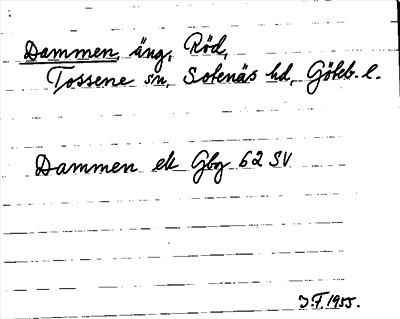 Dammen, äng, Röd,
Tossene sn, Sotenäs hd, Göteb. l.
Dammen ek Gbg 62 SV.
J.F. 1955.